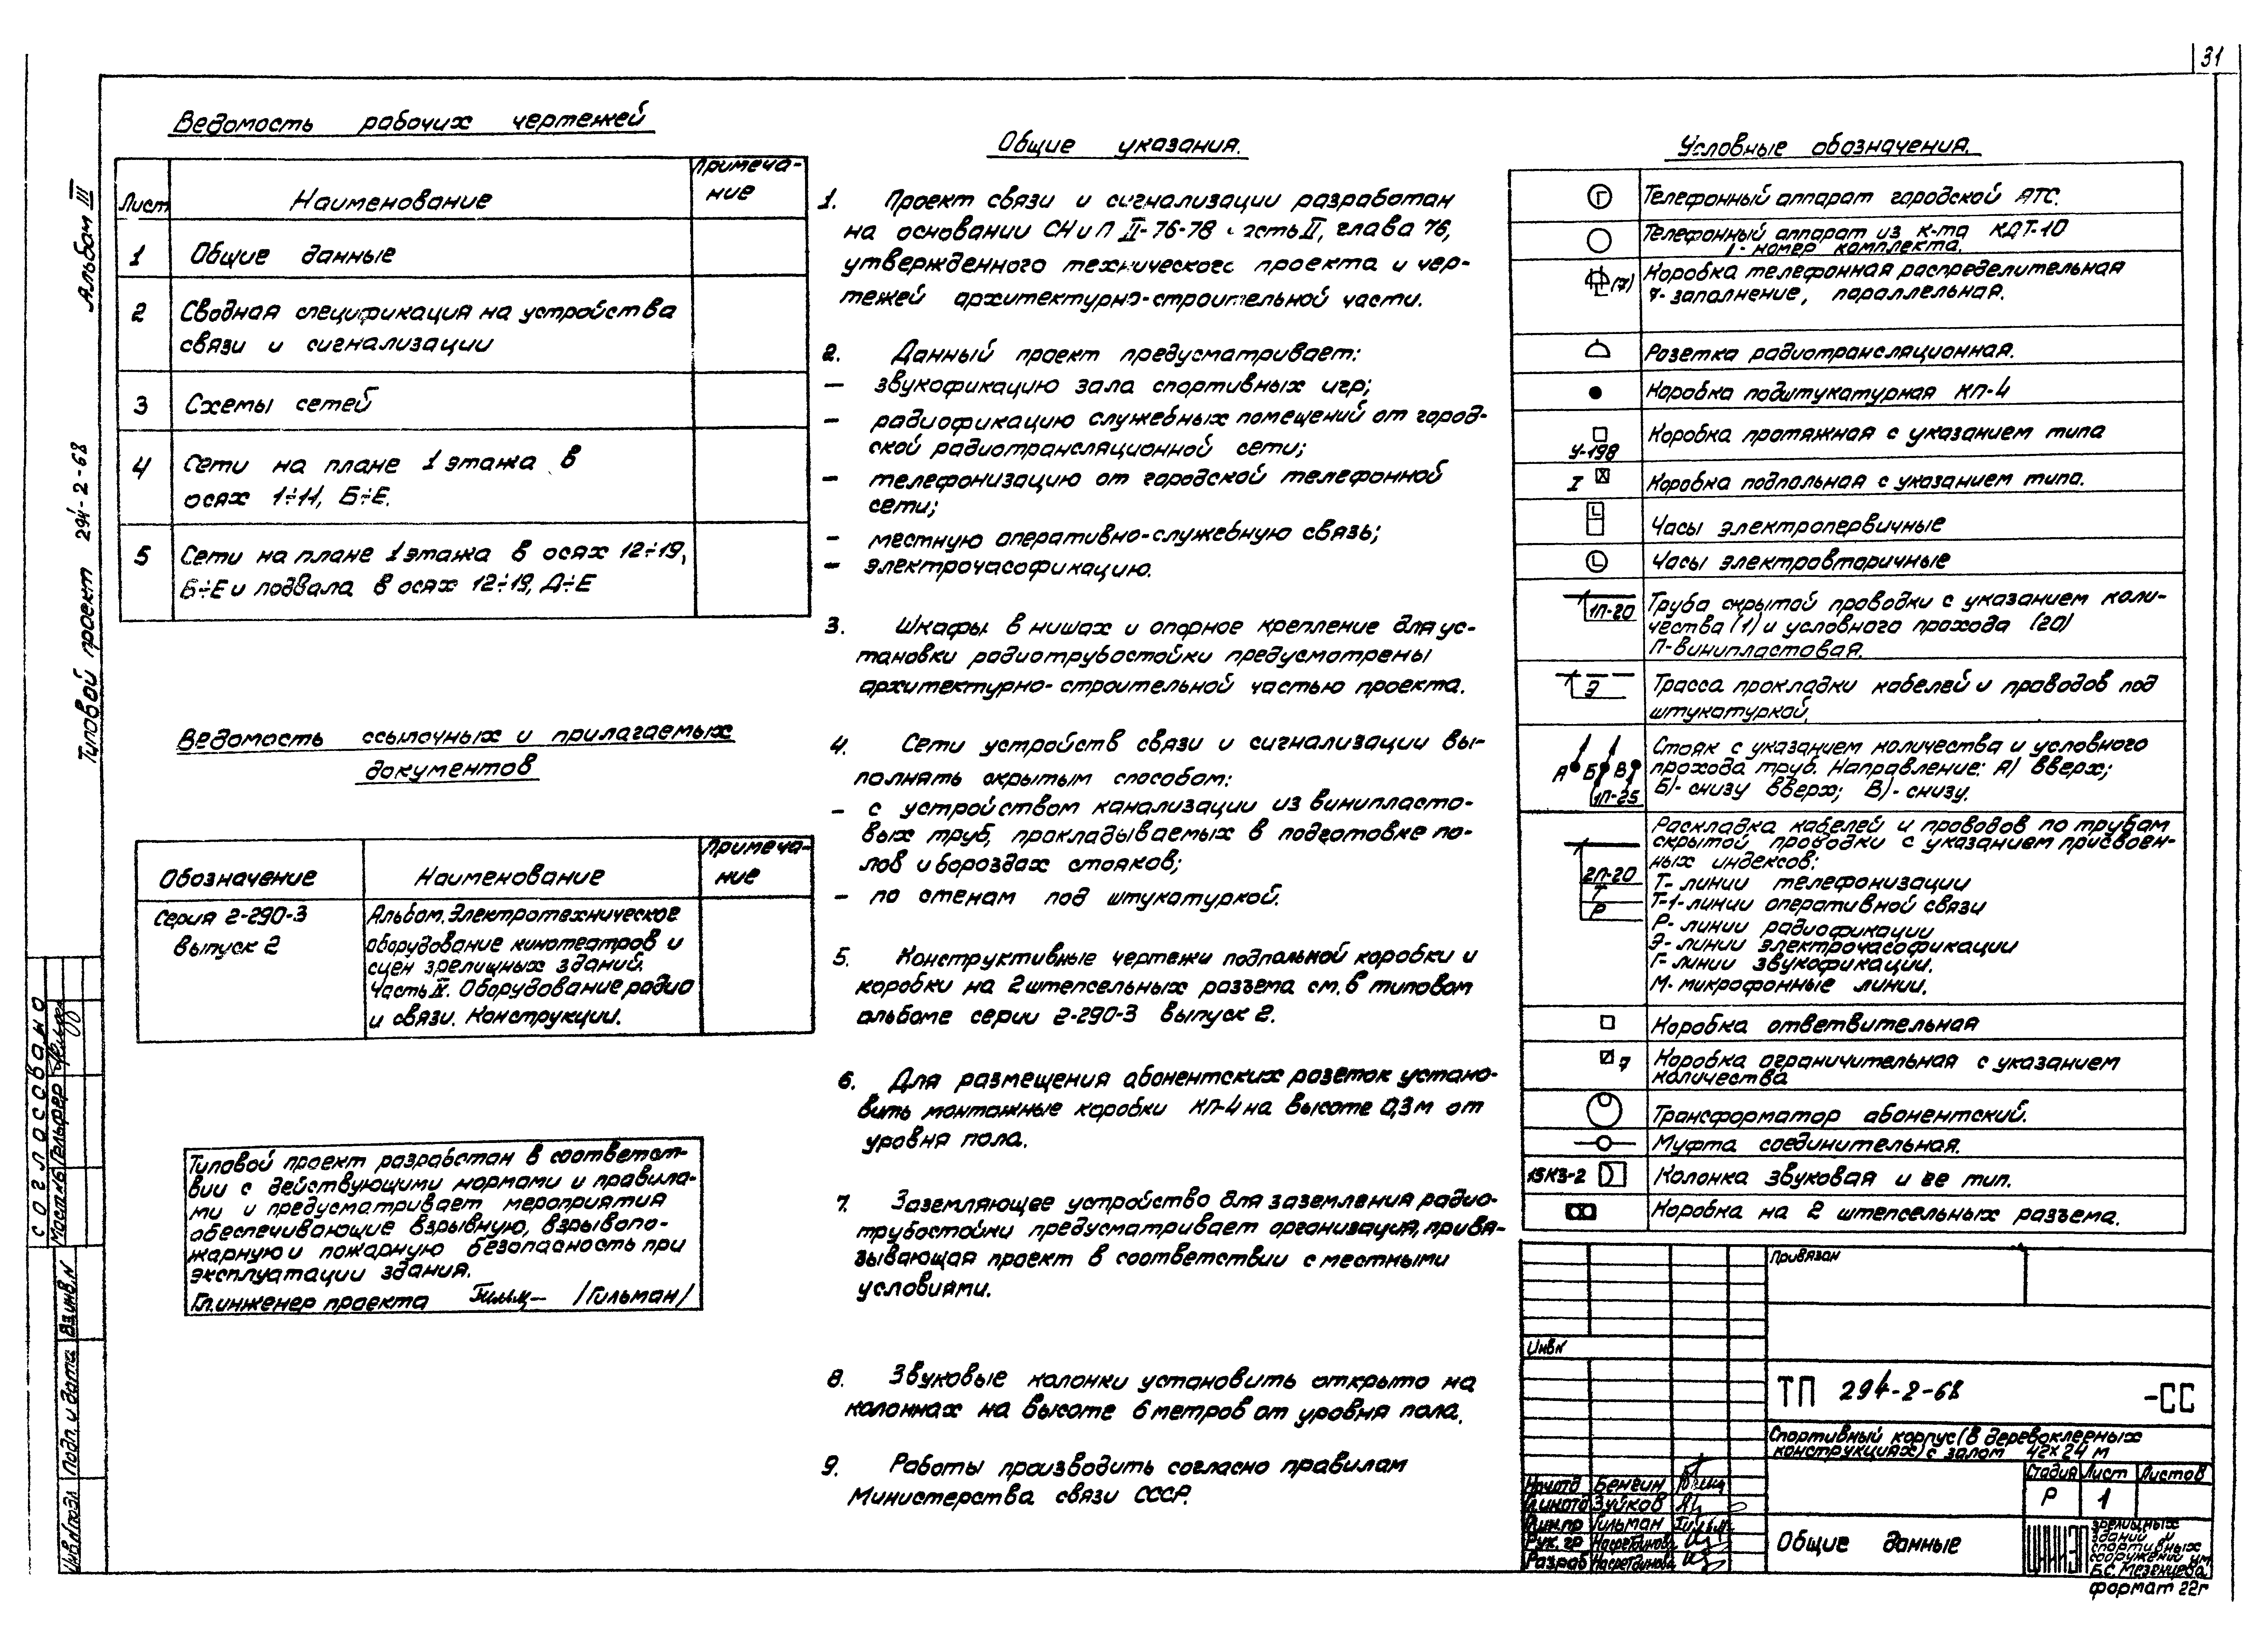 31
Альбом III
Типовой проект 294-2-68
Ведомость рабочих чертежей
Лист
Наименование
Примеча-
ние
1 Общие данные
2 Сводная спецификация на устройства
связи и сигнализации
3 Схемы сетей
4 Сети на плане 1 этажа в
осях 1÷11, Б÷Е.
5 Сети на плане 1 этажа в осях 12÷19,
Б÷Е и подвала в осях 12÷19, Д÷Е
Ведомость ссылочных и прилагаемых
документов
Обозначение
Наименование
Примеча-
ние
Серия 2-290-3
выпуск 2
Альбом. Электротехническое
оборудование кинотеатров и
сцен зрелищных зданий.
Часть IV. Оборудование радио
и связи. Конструкции.
Типовой проект разработан в соответст-
вии с действующими нормами и правила-
ми и предусматривает мероприятия
обеспечивающие взрывную, взрывопо-
жарную и пожарную безопасность при
эксплуатации здания.
Гл. инженер проекта /Гильман/
Общие указания.
1. Проект связи и сигнализации разработан
на основании СН и П II-76-78 часть II, глава 76,
утвержденного технического проекта и чер-
тежей архитектурно-строительной части.
2. Данный проект предусматривает:
– звукофикацию зала спортивных игр;
– радиофикацию служебных помещений от город-
ской радиотрансляционной сети;
– телефонизацию от городской телефонной
сети;
– местную оперативно-служебную связь;
– электрочасофикацию.
3. Шкафы в нишах и опорное крепление для ус-
тановки радиотрубостойки предусмотрены
архитектурно-строительной частью проекта.
4. Сети устройств связи и сигнализации вы-
полнять скрытым способом:
– с устройством канализации из винипласто-
вых труб, прокладываемых в подготовке по-
лов и бороздах стояков;
– по стенам под штукатуркой.
5. Конструктивные чертежи подпольной коробки и
коробки на 2 штепсельных разъема см. в типовом
альбоме серии 2-290-3 выпуск 2.
6. Для размещения абонентских розеток устано-
вить монтажные коробки КП-4 на высоте 0,3м от
уровня пола.
7. Заземляющее устройство для заземления радио-
трубостойки предусматривает организация, привя-
зывающая проект в соответствии с местными
условиями.
8. Звуковые колонки установить открыто на
колоннах на высоте 6 метров от уровня пола.
9. Работы производить согласно правилам
Министерства связи СССР.
Условные обозначения.
Г Телефонный аппарат городской АТС.
Телефонный аппарат из к-та КДТ-10
1-номер комплекта.
(7) Коробка телефонная распределительная
7-заполнение, параллельная.
Розетка радиотрансляционная.
Коробка подштукатурная КП-4
У-198 Коробка протяжная с указанием типа
I Коробка подпольная с указанием типа.
Часы электропервичные
Часы электровторичные
1П-20 Труба скрытой проводки с указанием коли-
чества (1) и условного прохода (20)
П-винипластовая.
Э Трасса прокладки кабелей и проводов под
штукатуркой.
А Б В
1П-25
Стояк с указанием количества и условного
прохода труб. Направление: А) вверх;
Б)- снизу вверх; В)- снизу.
2П-20
Т
Р
Раскладка кабелей и проводов по трубам
скрытой проводки с указанием присвоен-
ных индексов:
Т- линии телефонизации
Т-1-линии оперативной связи
Р- линии радиофикации
Э- линии электрочасофикации
Г- линии звукофикации.
М- микрофонные линии.
Коробка ответвительная
7 Коробка ограничительная с указанием
количества
Трансформатор абонентский.
Муфта соединительная.
15КЗ-2 Колонка звуковая и ее тип.
Коробка на 2 штепсельных разъема.
Привязан
Инв.N
ТП 294-2-68 -СС
Спортивный корпус (в деревоклееных
конструкциях) с залом 42×24 м
Стадия Лист Листов
Р 1
Нач.отд Бенгин
Гл.инотд Зуйков
Гл.ин.пр Гильман
Рук. гр Насретдинова
Разраб Насретдинова
Общие данные
ЦНИИЭП
зрелищных
зданий и
спортивных
сооружений им.
Б.С. Мезенцева
формат 22г
Согласовано
Гельфер
Взинв.N
Подп. и дата
Инв.N подл